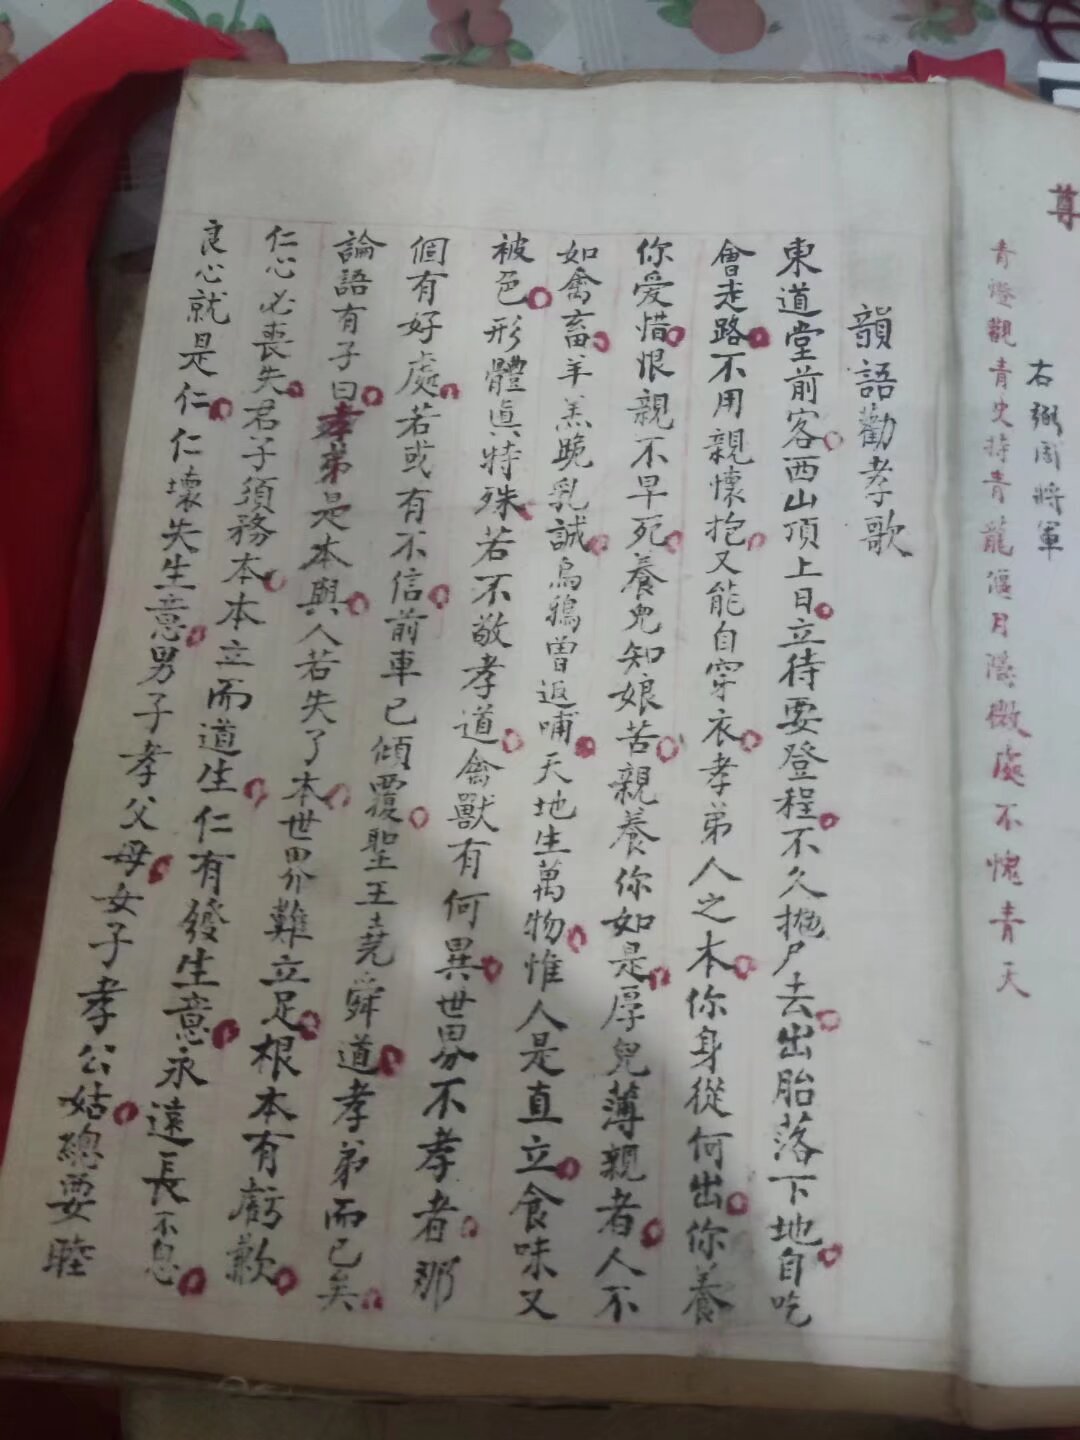 尊
右弼周將軍
青燈觀青史持青龍偃月隱微處不愧青天
韻語勸孝歌
東道堂前客西山頂上日立待要登程不久拋尸去出胎落下地自吃
會走路不用親懷抱又能自穿衣孝弟人之本你身從何出你養
你爱惜恨親不早死養兒知娘苦親養你如是厚兒薄親者人不
如禽畜羊羔跪乳誠烏鴉曾返哺天地生萬物惟人是直立食味又
被色形體眞特殊若不敬孝道禽獸有何異世界不孝者那
個有好處若或有不信前車已傾覆聖王堯舜道孝弟而已矣
論語有子曰孝弟是本與人若失了本世界難立足根本有虧歉
仁心必喪失君子須務本本立而道生仁有發生意永遠長不息
良心就是仁仁壞失生意男子孝父母女子孝公姑總要睦